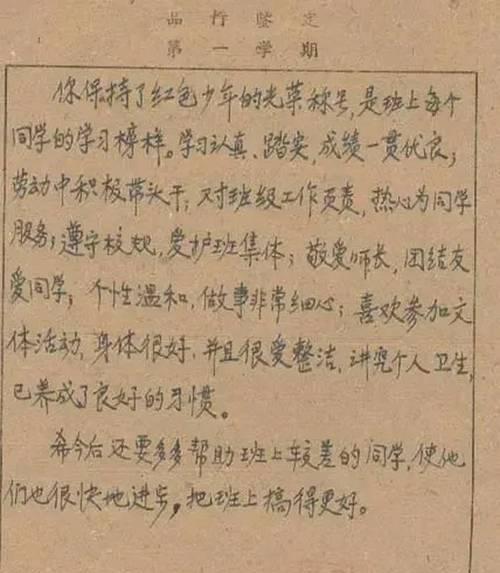 品行鉴定
第一学期
你保持了红色少年的光荣称号，是班上每个
同学的学习榜样。学习认真、踏实，成绩一贯优良；
劳动中积极带头干；对班级工作负责，热心为同学
服务；遵守校规，爱护班集体；敬爱师长，团结友
爱同学；个性温和，做事非常细心；喜欢参加文
体活动，身体很好，并且很爱整洁，讲究个人卫生，
已养成了良好的习惯。
希今后还要多多帮助班上较差的同学，使他
们也很快地进步，把班上搞得更好。